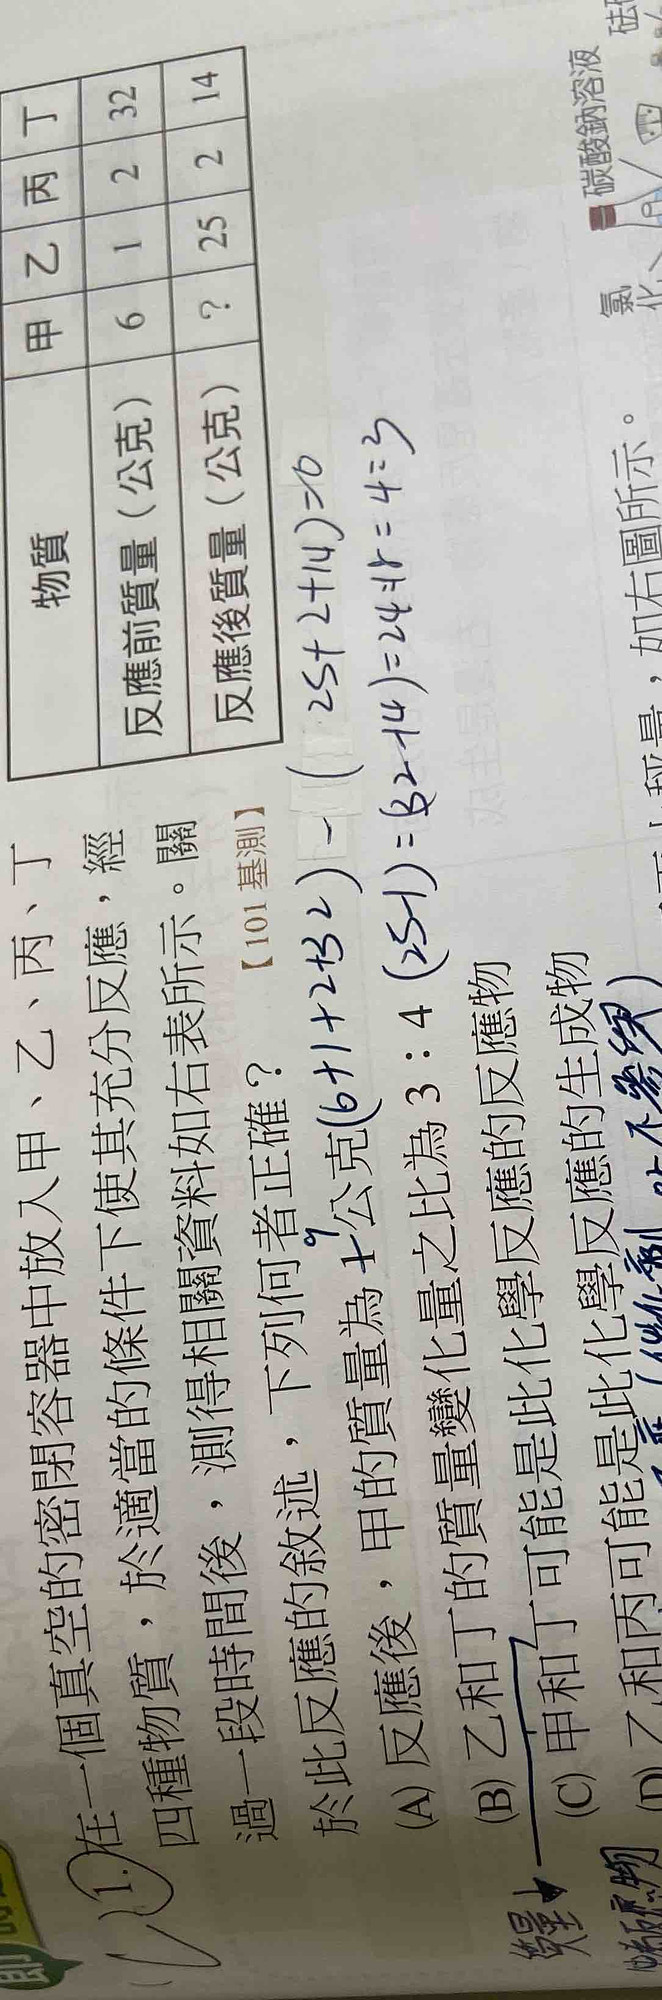 1. 在一個真空的密閉容器中放入甲、乙、丙、丁
四種物質，於適當的條件下使其充分反應，經
過一段時間後，測得相關資料如右表所示。關
於此反應的敘述，下列何者正確？【101 基測】
物質 甲 乙 丙 丁
反應前質量（公克） 6 1 2 32
反應後質量（公克） ? 25 2 14
(A) 反應後，甲的質量為 公克
(6+1+2+32) - (25+2+14)=0
(B) 乙和丁的質量變化量之比為 3：4
(25-1)=(32-14)=24=18=4=3
(C) 甲和丁可能是此化學反應的反應物
質量
(D) 乙和丙可能是此化學反應的生成物
，如右圖所示。
碳酸鈉溶液
氯
化